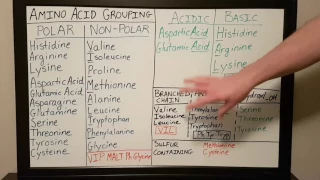 AMINO ACID GROUPING
POLAR
Histidine
Arginine
Lysine
Aspartic Acid
Glutamic Acid
Asparagine
Glutamine
Serine
Threonine
Tyrosine
Cysteine
NON-POLAR
Valine
Isoleucine
Proline
Methionine
Alanine
Leucine
Tryptophan
Phenylalanine
Glycine
VIP MALT Ph Glycine
ACIDIC
Aspartic Acid
Glutamic Acid
BASIC
Histidine
Arginine
Lysine
BRANCHED
CHAIN
Valine
Isoleucine
Leucine
(VIL)
Phenylalanine
Tyrosine
Tryptophan
Serine
Threonine
Tyrosine
SULFUR
CONTAINING:
Methionine
Cysteine